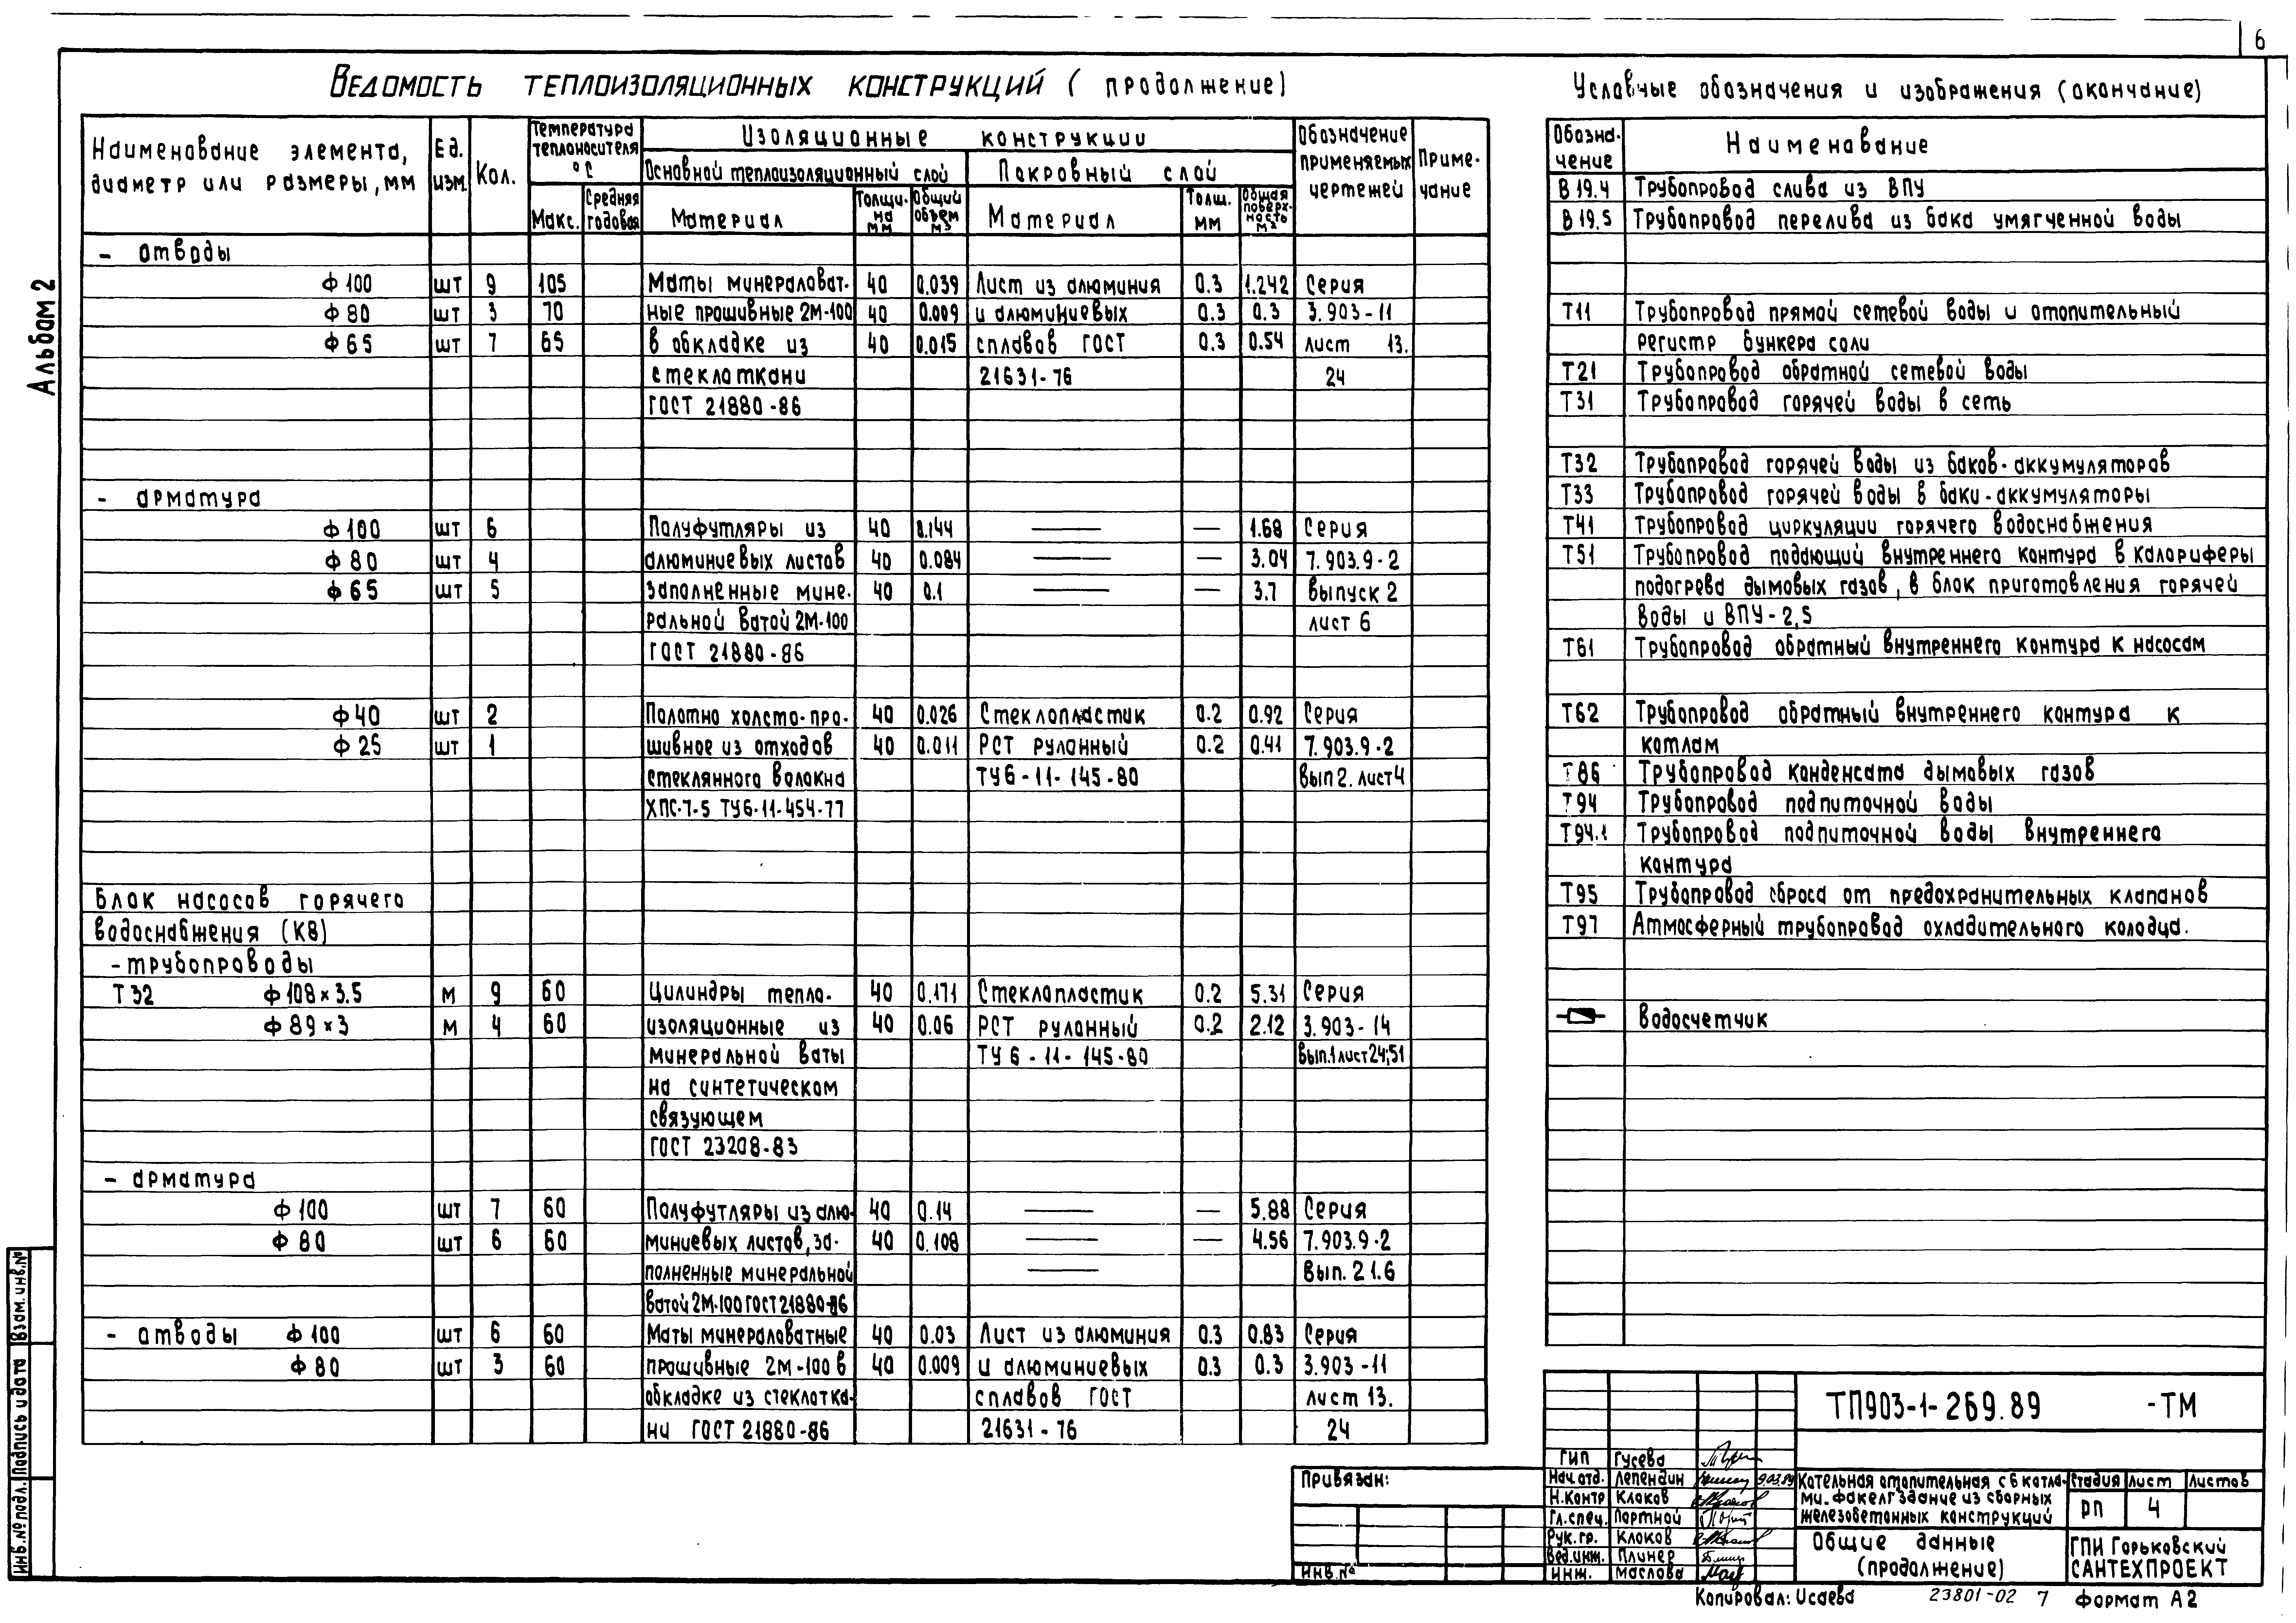 6
Альбом 2
Ведомость теплоизоляционных конструкций (продолжение)
Наименование элемента, диаметр или размеры, мм
Ед. изм.
Кол.
Температура теплоносителя °С
Макс.
Средняя годовая
Изоляционные конструкции
Основной теплоизоляционный слой
Покровный слой
Материал
Толщина мм
Общий объем м3
Материал
Толщ. мм
Общая поверхность м2
Обозначение применяемых чертежей
Примечание
- отводы
ф 100 шт 9 105 Маты минераловат- 40 0.039 Лист из алюминия 0.3 1.242 Серия
ф 80 шт 3 70 ные прошивные 2М-100 40 0.009 и алюминиевых 0.3 0.3 3.903-11
ф 65 шт 7 65 в обкладке из 40 0.015 сплавов ГОСТ 0.3 0.54 лист 13.
стеклоткани 21631-76 24
ГОСТ 21880-86
- арматура
ф 100 шт 6 Полуфутляры из 40 0.144 — — 1.68 Серия
ф 80 шт 4 алюминиевых листов 40 0.084 — — 3.04 7.903.9-2
ф 65 шт 5 заполненные мине- 40 0.1 — — 3.7 выпуск 2
ральной ватой 2М-100 лист 6
ГОСТ 21880-86
ф 40 шт 2 Полотно холсто-про- 40 0.026 Стеклопластик 0.2 0.92 Серия
ф 25 шт 1 шивное из отходов 40 0.011 РСТ рулонный 0.2 0.41 7.903.9-2
стеклянного волокна ТУ6-11-145-80 Вып 2. лист 4
ХПС-Т-5 ТУ6-11-454-77
Блок насосов горячего
водоснабжения (К8)
- трубопроводы
Т32 ф 108×3.5 м 9 60 Цилиндры тепло- 40 0.171 Стеклопластик 0.2 5.31 Серия
ф 89×3 м 4 60 изоляционные из 40 0.06 РСТ рулонный 0.2 2.12 3.903-14
минеральной ваты ТУ 6-11-145-80 Вып.1 лист 24;51
на синтетическом
связующем
ГОСТ 23208-83
- арматура
ф 100 шт 7 60 Полуфутляры из алю- 40 0.14 — — 5.88 Серия
ф 80 шт 6 60 миниевых листов, за- 40 0.108 — — 4.56 7.903.9-2
полненные минеральной — Вып. 2 л.6
ватой 2М-100 ГОСТ 21880-86
- отводы ф 100 шт 6 60 Маты минераловатные 40 0.03 Лист из алюминия 0.3 0.83 Серия
ф 80 шт 3 60 прошивные 2М-100 в 40 0.009 и алюминиевых 0.3 0.3 3.903-11
обкладке из стеклотка- сплавов ГОСТ лист 13.
ни ГОСТ 21880-86 21631-76 24
Условные обозначения и изображения (окончание)
Обозна- чение
Наименование
В19.4 Трубопровод слива из ВПУ
В19.5 Трубопровод перелива из бака умягченной воды
Т11 Трубопровод прямой сетевой воды и отопительный
регистр бункера соли
Т21 Трубопровод обратной сетевой воды
Т31 Трубопровод горячей воды в сеть
Т32 Трубопровод горячей воды из баков-аккумуляторов
Т33 Трубопровод горячей воды в баки-аккумуляторы
Т41 Трубопровод циркуляции горячего водоснабжения
Т51 Трубопровод подающий внутреннего контура в калориферы
подогрева дымовых газов, в блок приготовления горячей
воды и ВПУ-2,5
Т61 Трубопровод обратный внутреннего контура к насосам
Т62 Трубопровод обратный внутреннего контура к
котлам
Т86 Трубопровод конденсата дымовых газов
Т94 Трубопровод подпиточной воды
Т94.1 Трубопровод подпиточной воды внутреннего
контура
Т95 Трубопровод сброса от предохранительных клапанов
Т97 Атмосферный трубопровод охладительного колодца.
Водосчетчик
Привязан:
Инв.№
ТП903-1-269.89 -ТМ
ГИП Гусева
Нач.отд. Лепендин 9.03.89
Н.контр Клоков
Гл.спец. Портной
Рук.гр. Клоков
Вед.инж. Плинер
Инж. Маслова
Котельная отопительная с 6 котла-
ми „Факел" Здание из сборных
железобетонных конструкций
Стадия Лист Листов
РП 4
Общие данные
(продолжение)
ГПИ Горьковский
САНТЕХПРОЕКТ
Копировал: Исаева 23801-02 7 Формат А2
Инв.№ подл. Подпись и дата Взам.инв.№